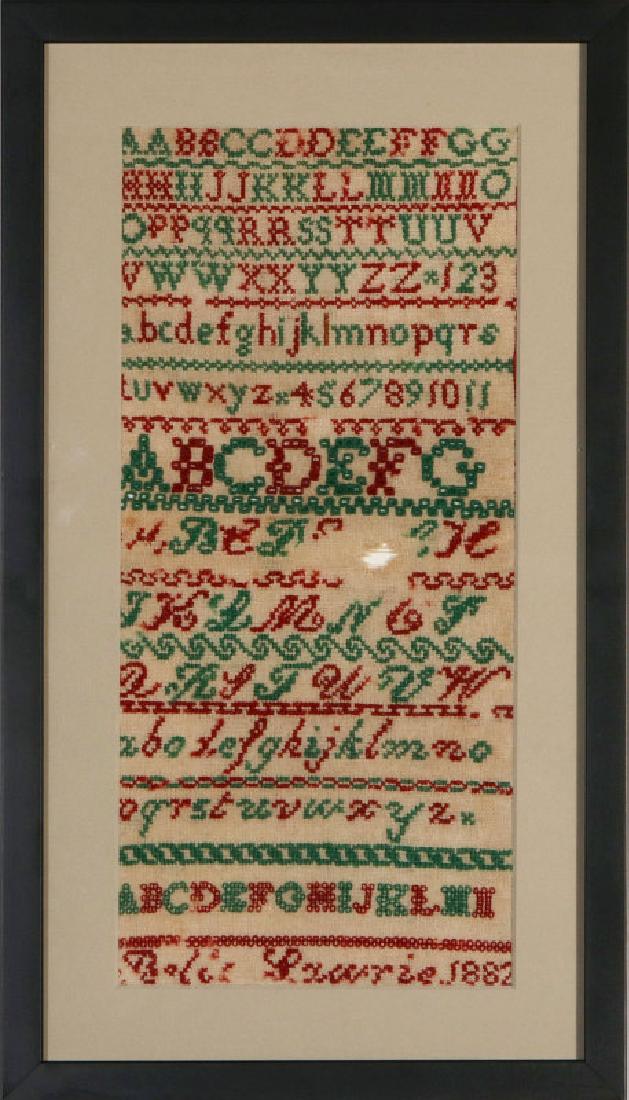 AABBCCDDEEFFGG
HHIIJJKKLLMMNNO
OPPqqRRSSTTUUV
VWWXXYYZZ*123
abcdefghijklmnopqrs
tuvwxyz*4567891011
ABCDEFG
BCD H
IKLMNOP
QRSTUVW
abcdefghijklmno
pqrstuvwxyz*
ABCDEFGHIJKLM
Lawrie 1882